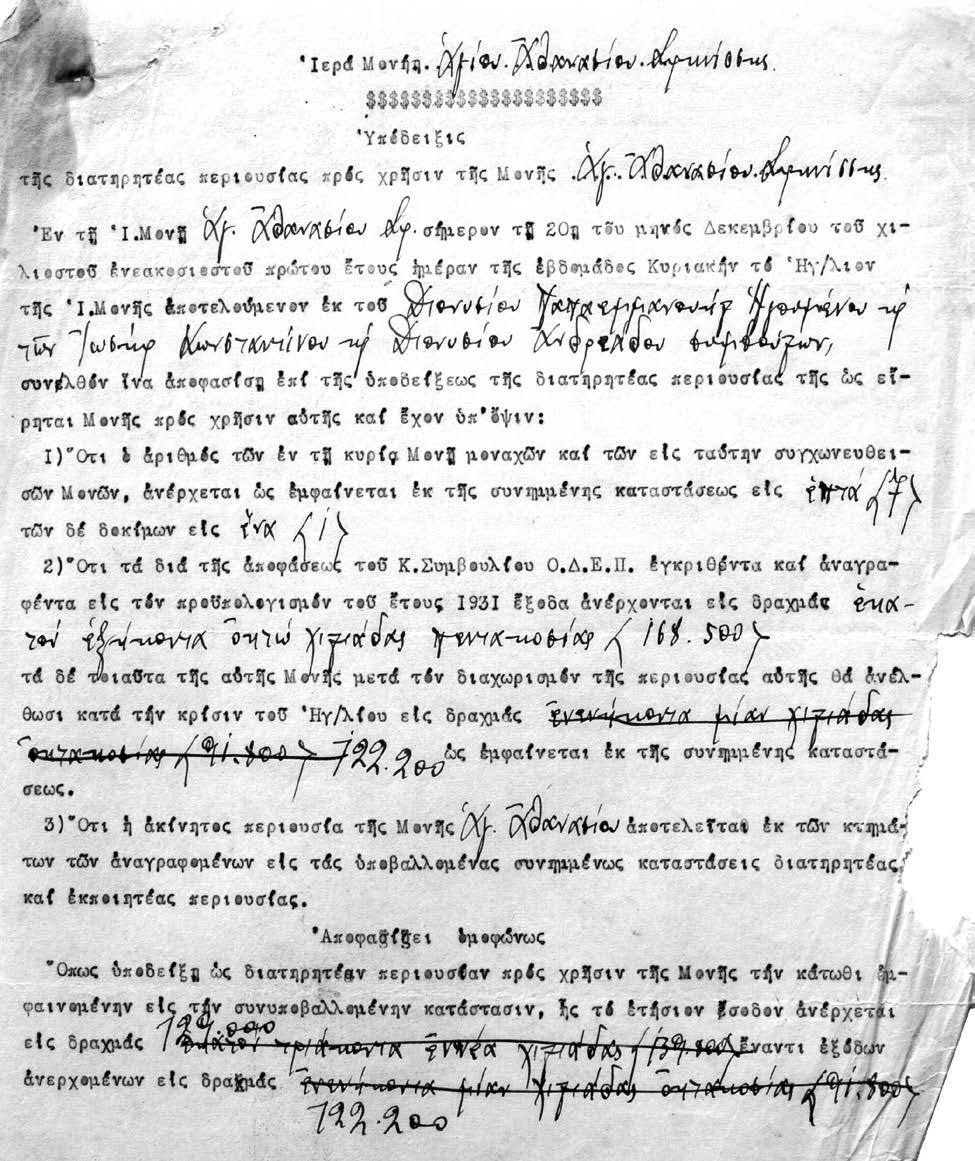 Ἱερά Μονή. Ἁγίου. Ἀθανασίου. Σφηνίσσης.
$$$$$$$$$$$$$$$$$$$$$
Ὑπόδειξις
τῆς διατηρητέας περιουσίας πρός χρῆσιν τῆς Μονῆς .Ἁγ. Ἀθανασίου. Σφηνίσσης.
Ἐν τῇ Ἱ.Μονῇ Ἁγ. Ἀθανασίου Σφ. σήμερον τῇ 20η τοῦ μηνός Δεκεμβρίου τοῦ χι-
λιοστοῦ ἐνεακοσιοστοῦ πρώτου ἔτους ἡμέραν τῆς ἑβδομάδος Κυριακήν τό Ἡγ/λιον
τῆς Ἱ.Μονῆς ἀποτελούμενον ἐκ τοῦ Διονυσίου Παπαεμμανουήλ Ἡγουμένου κ
τῶν Ἰωσήφ Κωνσταντίνου κ Διονυσίου Ἀνδρεάδου συμβούλων,
συνελθόν ἵνα ἀποφασίσῃ ἐπί τῆς ὑποδείξεως τῆς διατηρητέας περιουσίας τῆς ὡς εἴ-
ρηται Μονῆς πρός χρῆσιν αὐτῆς καί ἔχον ὑπ'ὄψιν:
1)Ὅτι ὁ ἀριθμός τῶν ἐν τῇ κυρίᾳ Μονῇ μοναχῶν καί τῶν εἰς ταύτην συγχωνευθει-
σῶν Μονῶν, ἀνέρχεται ὡς ἐμφαίνεται ἐκ τῆς συνημμένης καταστάσεως εἰς ἑπτά (7)
τῶν δέ δοκίμων εἰς ἕνα (1)
2)Ὅτι τά διά τῆς ἀποφάσεως τοῦ Κ.Συμβουλίου Ο.Δ.Ε.Π. ἐγκριθέντα καί ἀναγρα-
φέντα εἰς τόν προϋπολογισμόν τοῦ ἔτους 1931 ἔξοδα ἀνέρχονται εἰς δραχμάς ἑκα-
τόν ἑξήκοντα ὀκτώ χιλιάδας πεντακοσίας (168.500)
τά δέ τοιαῦτα τῆς αὐτῆς Μονῆς μετά τόν διαχωρισμόν τῆς περιουσίας αὐτῆς θά ἀνέλ-
θωσι κατά τήν κρίσιν τοῦ Ἡγ/λίου εἰς δραχμάς ἐνενήκοντα μίαν χιλιάδας
ὀκτακοσίας (91.800) 122.200 ὡς ἐμφαίνεται ἐκ τῆς συνημμένης καταστά-
σεως.
3)Ὅτι ἡ ἀκίνητος περιουσία τῆς Μονῆς Ἁγ. Ἀθανασίου ἀποτελεῖται ἐκ τῶν κτημά-
των τῶν ἀναγραφομένων εἰς τάς ὑποβαλλομένας συνημμένως καταστάσεις διατηρητέας
καί ἐκποιητέας περιουσίας.
Ἀποφασίζει ὁμοφώνως
Ὅπως ὑποδείξῃ ὡς διατηρητέαν περιουσίαν πρός χρῆσιν τῆς Μονῆς τήν κάτωθι ἐμ-
φαινομένην εἰς τήν συνυποβαλλομένην κατάστασιν, ἧς τό ἐτήσιον ἔσοδον ἀνέρχεται
εἰς δραχμάς 129.000 ἑκατόν τριάκοντα ἐννέα χιλιάδας (139.000) ἔναντι ἐξόδων
ἀνερχομένων εἰς δραχμάς ἐνενήκοντα μίαν χιλιάδας ὀκτακοσίας (91.800)
122.200